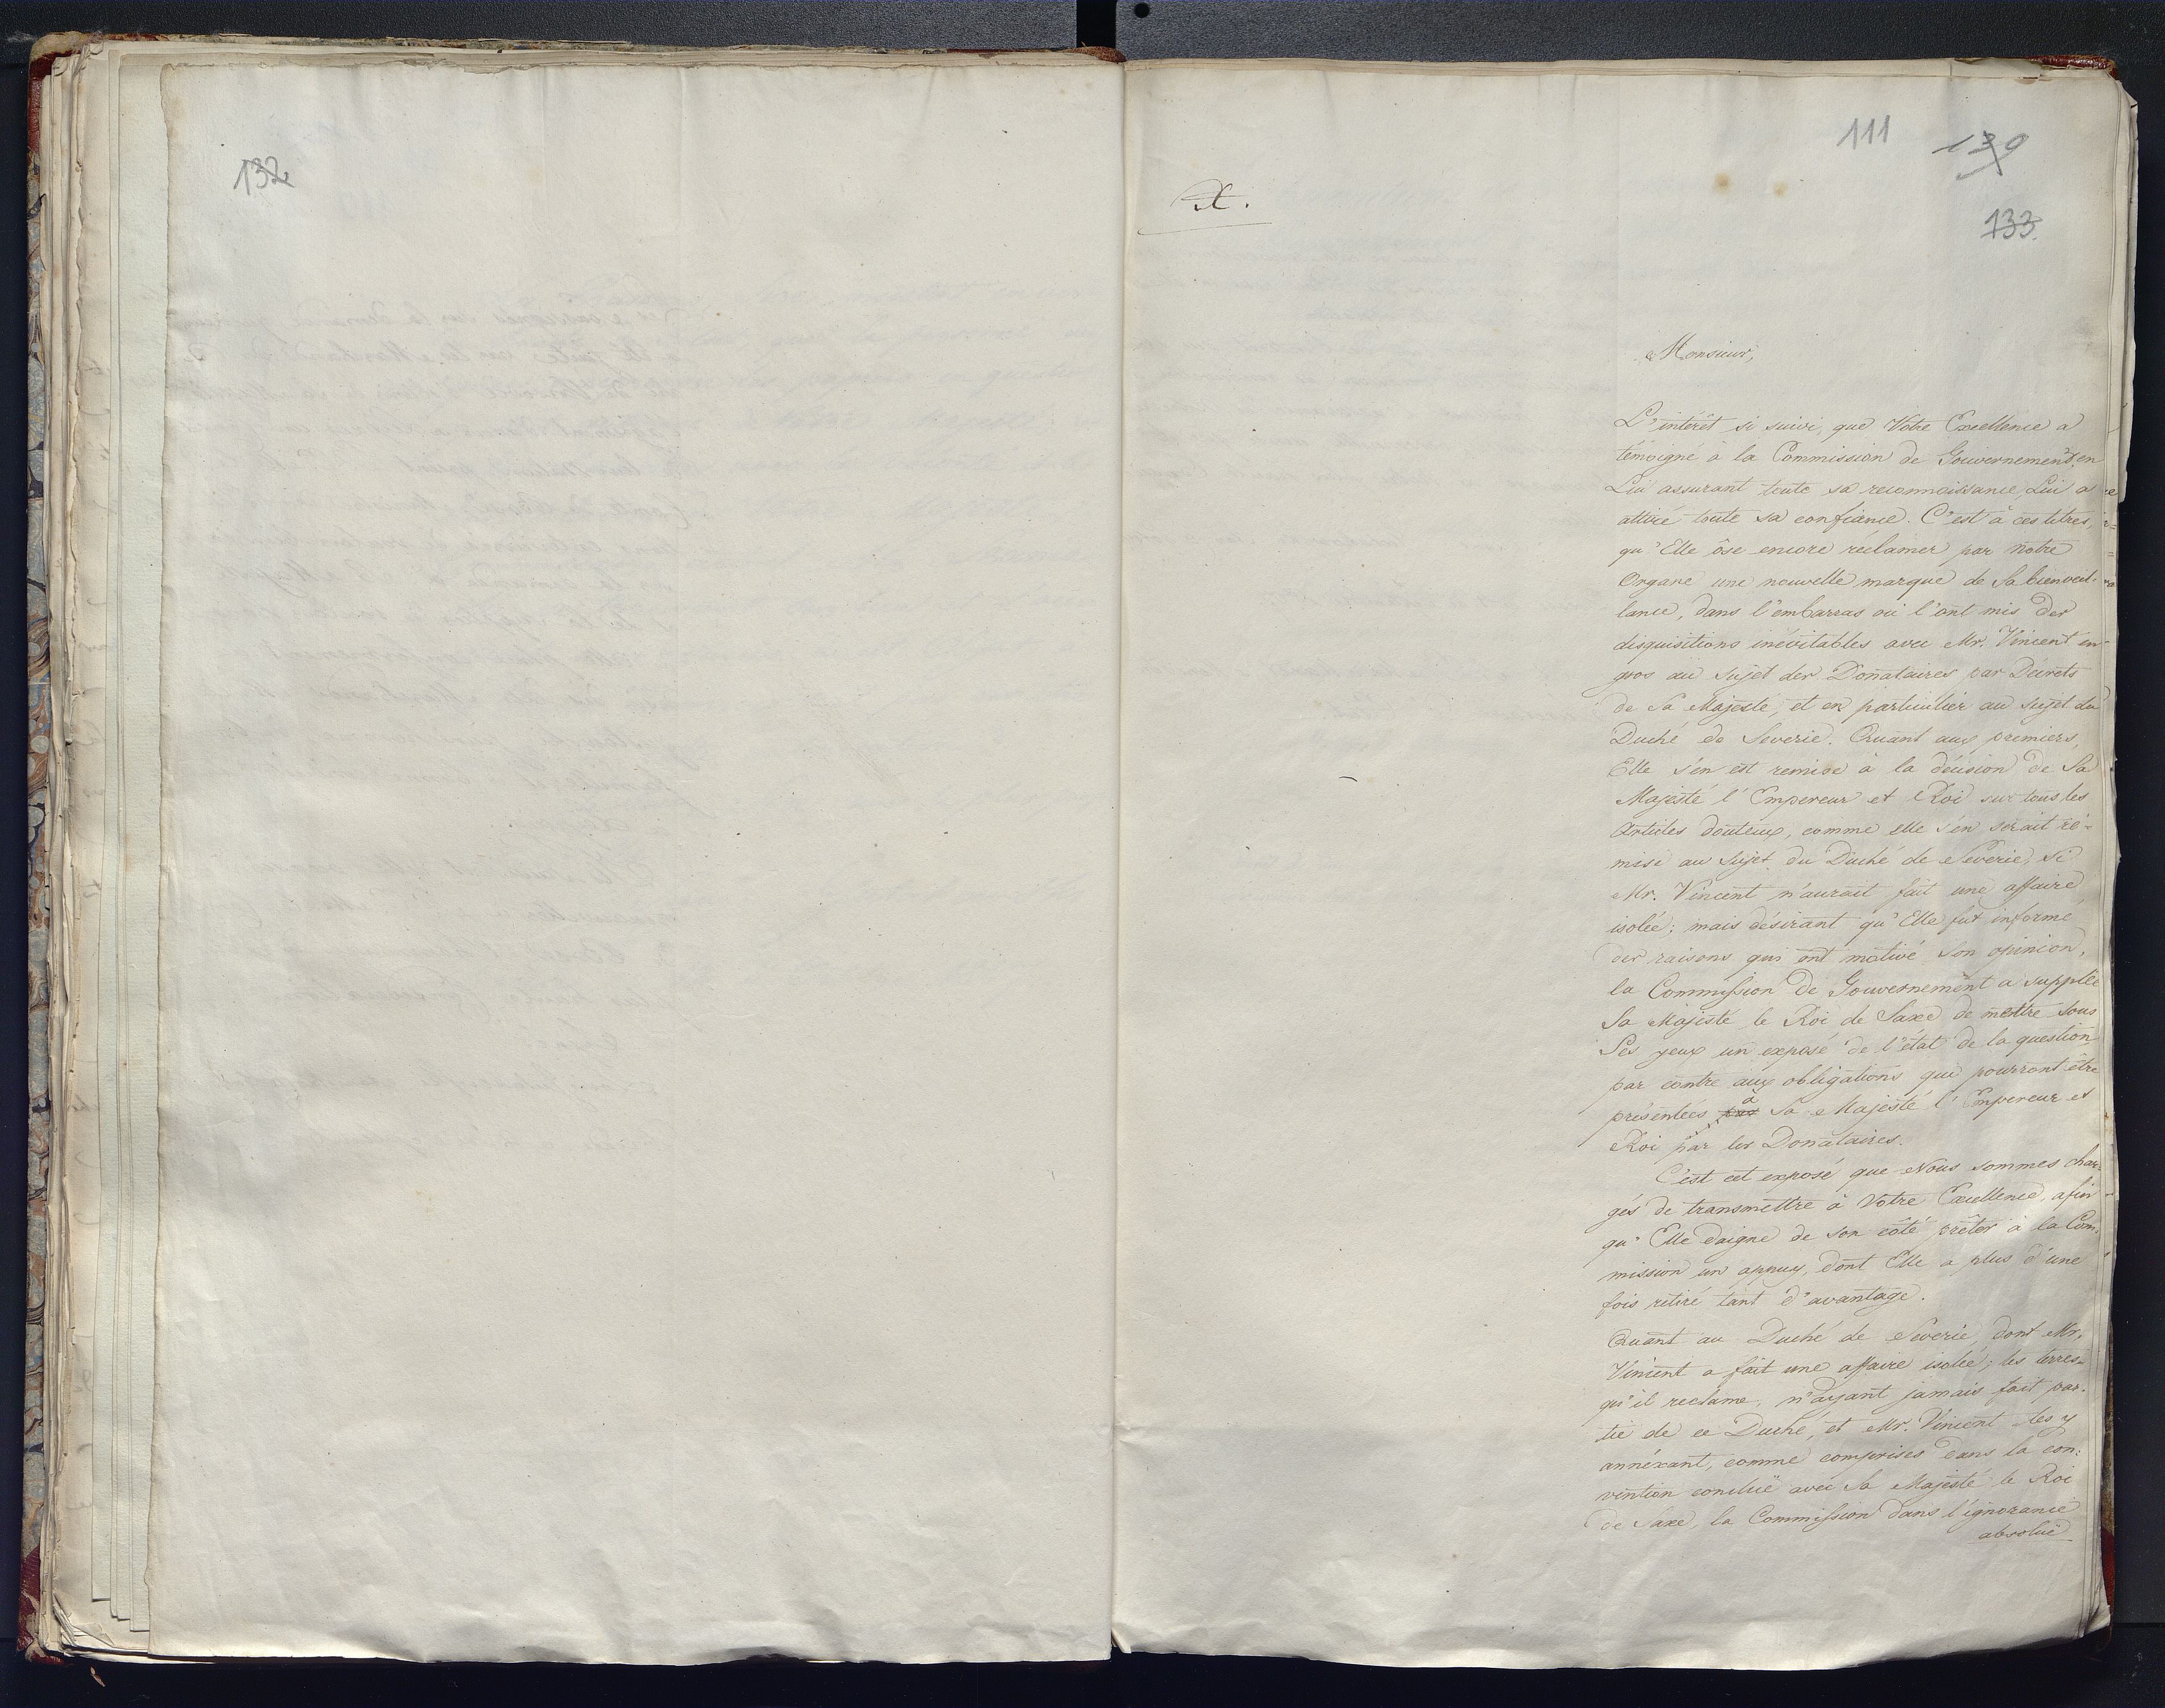 132
111
139
133.
X.
Monsieur,
L'intérêt si suivi, que Votre Excellence a
témoigné à la Commission de Gouvernement, en
Lui assurant toute sa reconnaissance, Lui a
attiré toute sa confiance. C'est à ces titres,
qu'Elle ôse encore réclamer par notre
Organe une nouvelle marque de Sa bienveil-
lance, dans l'embarras où l'ont mis des
disquisitions inévitables avec Mr. Vincent en
gros au Sujet des Donataires par Decrets
de Sa Majesté, et en particulier au sujet du
Duché de Severie. Quant aux premiers,
Elle s'en est remise à la décision de Sa
Majesté l'Empereur et Roi sur tous les
Articles douteux, comme elle s'en serait re-
mise au Sujet du Duché de Severie, si
Mr. Vincent n'aurait fait une affaire
isolée; mais désirant qu'Elle fut informé
des raisons qui ont motivé son opinion,
la Commission de Gouvernement a supplié
Sa Majesté le Roi de Saxe de mettre sous
Ses yeux un exposé de l'état de la question
par contre aux obligations que pourront être
présentées par à Sa Majesté l'Empereur et
Roi par les Donataires.
C'est cet exposé que Nous sommes char-
gés de transmettre à Votre Excellence, afin
qu'Elle daigne de son côté prêter à la Com-
mission un appuy, dont Elle a plus d'une
fois retiré tant d'avantage.
Quant au Duché de Severie, dont Mr.
Vincent a fait une affaire isolée; les terres
qu'il reclame, n'ayant jamais fait par-
tie de ce Duché, et Mr. Vincent les y
annéxant, comme comprises dans la con-
vention conclüe avec Sa Majesté le Roi
de Saxe, la Commission dans l'ignorance
absolüe